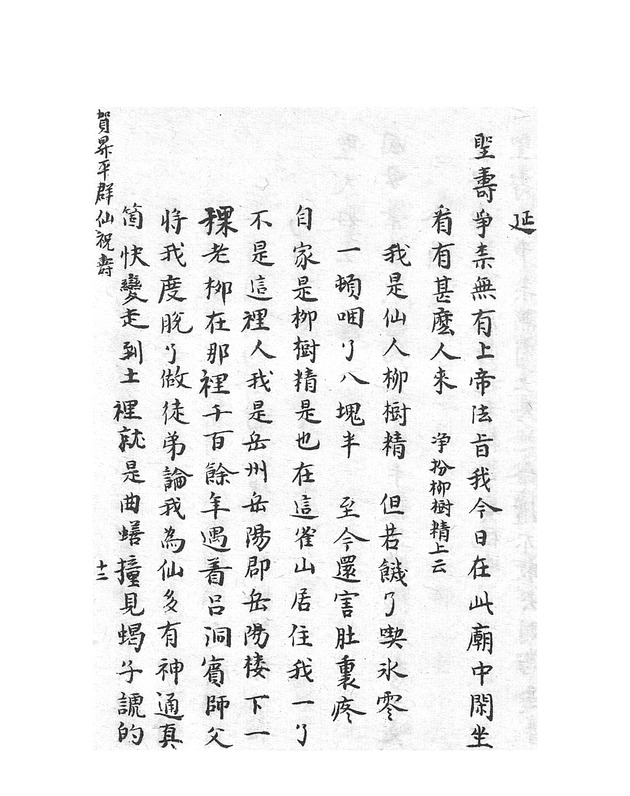 延
聖壽爭柰無有上帝法旨我今日在此廟中閑坐
看有甚麽人来　淨扮柳樹精上云
我是仙人柳樹精　但若饑了喫氷零
一頓咽了八塊半　至今還害肚裏疼
自家是柳樹精是也在這雀山居住我一了
不是這裡人我是岳州岳陽郡岳陽楼下一
稞老柳在那裡千百餘年遇着吕洞賓師父
将我度脱了做徒弟論我為仙多有神通真
箇快變走到土裡就是曲蟮撞見蝎子諕的
賀昇平群仙祝壽　十二